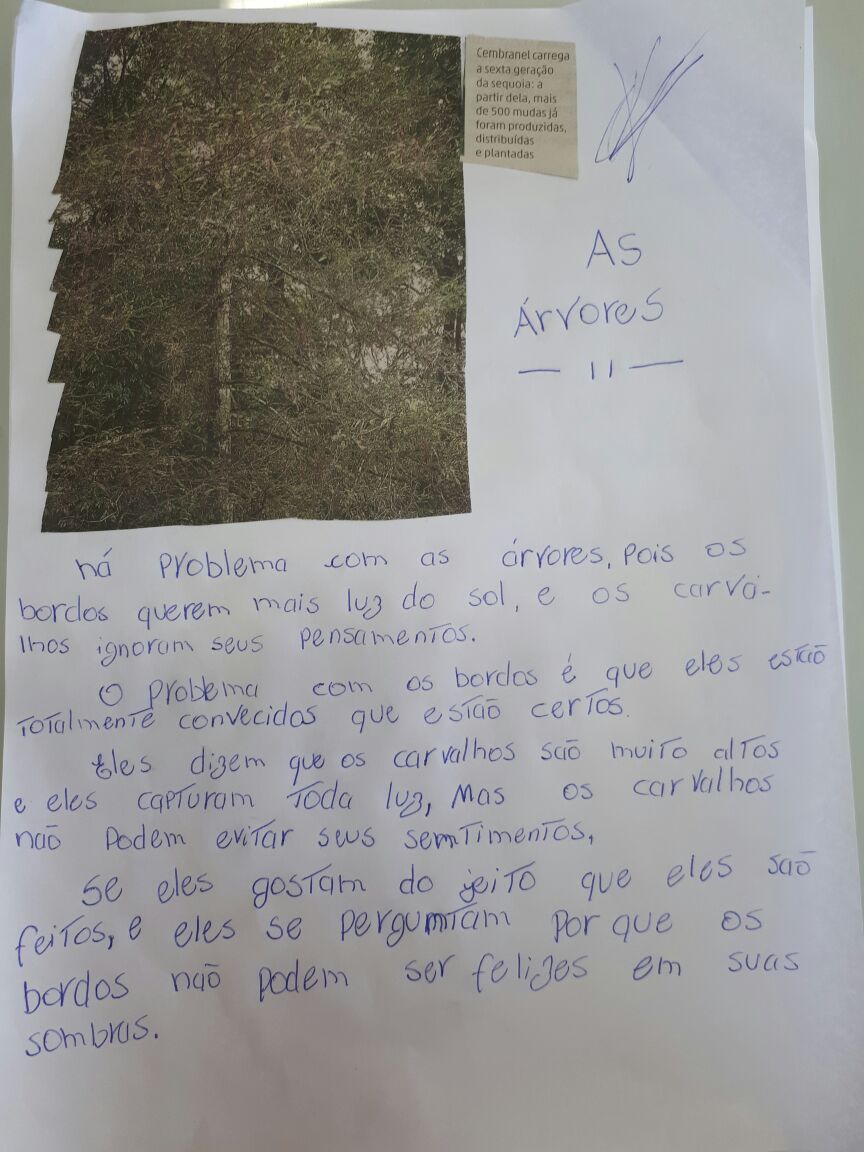 Cembranel carrega
a sexta geração
da sequoia: a
partir dela, mais
de 500 mudas já
foram produzidas,
distribuídas
e plantadas
AS
Árvores
há problema com as árvores, pois os
bordos querem mais luz do sol, e os carva-
lhos ignoram seus pensamentos.
O problema com os bordos é que eles estão
totalmente convecidos que estão certos.
Eles dizem que os carvalhos são muito altos
e eles capturam toda luz, mas os carvalhos
não podem evitar seus semtimentos,
Se eles gostam do jeito que eles são
feitos, e eles se pergumtam por que os
bordos não podem ser felizes em suas
sombras.